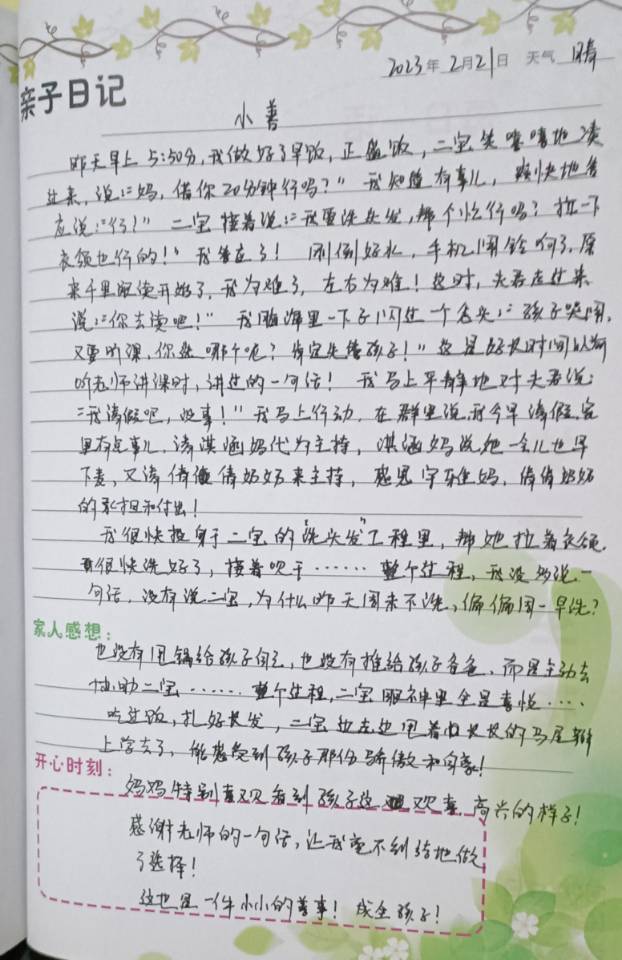 2023年2月21日 天气 晴
亲子日记
小善
昨天早上5:50分,我做好了早饭,正盛饭,二宝笑嘻嘻地凑
过来,说:"妈,借你20分钟行吗?"我知道有事儿,爽快地答
应说:"行!"二宝接着说:"我要洗头发,帮个忙行吗?拉一下
衣领也行的!"我答应了!刚倒好水,手机闹铃响了,原
来千里眼读开始了,我为难了,左右为难!这时,夫君走过来
说:"你去读吧!"我脑海里一下子闪过一个念头:"孩子哭闹,
又要听课,你选哪个呢?肯定先管孩子!"这是好长时间以前
听老师讲课时,讲过的一句话!我马上平静地对夫君说:
"我请假吧,没事!"我马上行动,在群里说,我今早请假,家
里有点事儿,请淇涵妈代为主持,淇涵妈说她一会儿也早
下麦,又请倩倩奶奶来主持,感恩宇雅妈,倩倩奶奶
的承担和付出!
我很快投身于二宝的"洗头发"工程里,帮她拉着衣领,
很快洗好了,接着吹干……整个过程,我没多说一
句话,没有说二宝,为什么昨天周末不洗,偏偏周一早洗?
家人感想:
也没有甩锅给孩子自己,也没有推给孩子爸爸,而是主动去
协助二宝……整个过程,二宝眼神里全是喜悦……
吃过饭,扎好长发,二宝边走边甩着长长的马尾辫
上学去了,能感受到孩子那份骄傲和自豪!
开心时刻:
妈妈特别喜欢看到孩子这欢喜、高兴的样子!
感谢老师的一句话,让我毫不纠结地做
了选择!
这也是一件小小的善事!成全孩子!